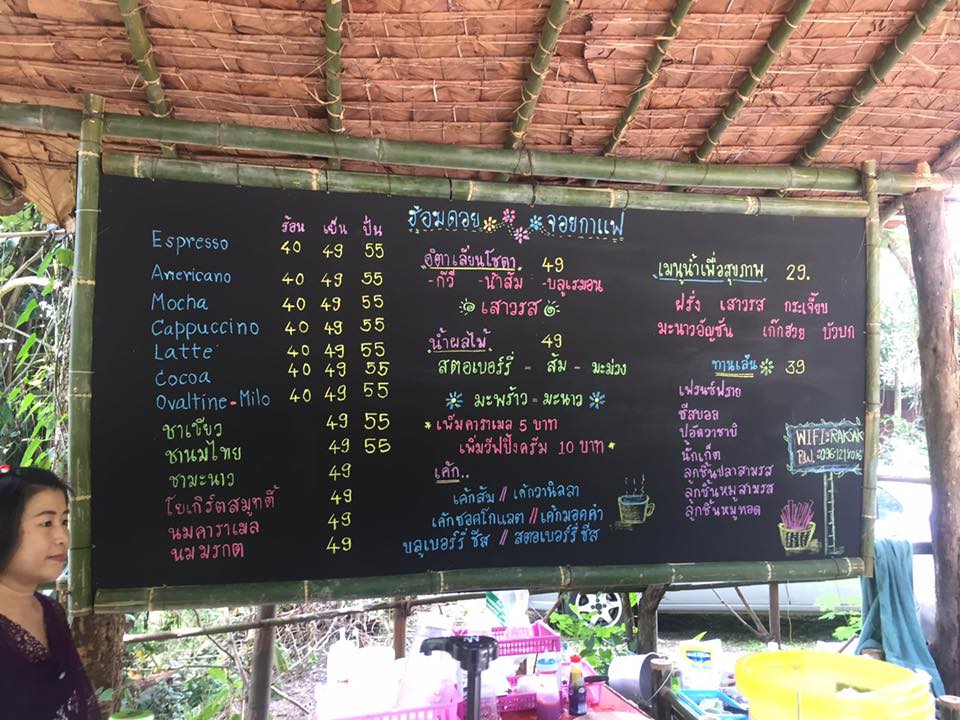 ฮ้อมดอย จอยกาแฟ
ร้อน เย็น ปั่น
Espresso 40 49 55
Americano 40 49 55
Mocha 40 49 55
Cappuccino 40 49 55
Latte 40 49 55
Cocoa 40 49 55
Ovaltine-Milo 40 49 55
ชาเขียว 49 55
ชานมไทย 49 55
ชามะนาว 49
โยเกิร์ตสมูทตี้ 49
นมคาราเมล 49
นมมรกต 49
อิตาเลียนโซดา 49
-กีวี -น้ำส้ม -บลูเรมอน
เสาวรส
น้ำผลไม้ 49
สตอเบอร์รี่ - ส้ม - มะม่วง
มะพร้าว - มะนาว
* เพิ่มคาราเมล 5 บาท
เพิ่มวีฟปิ้งครีม 10 บาท *
เค้ก..
เค้กส้ม // เค้กวานิลลา
เค้กชอคโกแลต // เค้กมอคค่า
บลูเบอร์รี่ ชีส // สตอเบอร์รี่ ชีส
เมนูน้ำเพื่อสุขภาพ 29.
ฝรั่ง เสาวรส กระเจี๊ยบ
มะนาวอัญชัน เก๊กฮวย บัวบก
ทานเล่น 39
เฟรนช์ฟราย
ชีสบอล
ปอัดวาซาบิ
นักเก็ต
ลูกชิ้นปลาสามรส
ลูกชิ้นหมูสามรส
ลูกชิ้นหมูทอด
WIFI:
P.W.: